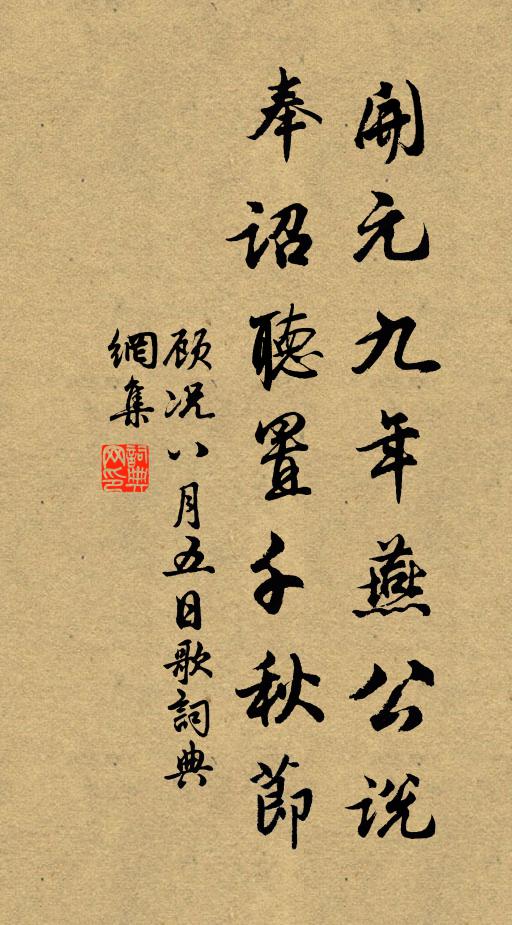 開元九年燕公說
奉詔聽置千秋節
顧况八月五日歌詞典
網集
詞典
网印